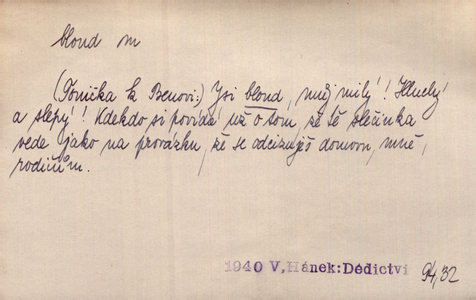 blond m
(Tonička k Benovi:) Jsi blond, můj milý! Hluchý
a slepý! Kdekdo si povídá už o tom, že tě slečinka
vede jako na provázku, že se odcizuješ domovu, mně,
rodičům.
1940 V. Hánek: Dědictví 94,32